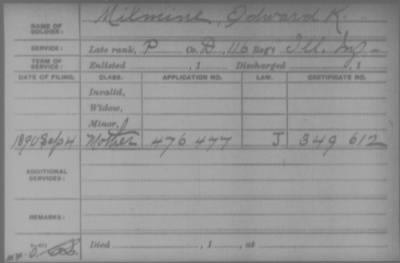 NAME OF SOLDIER: Milmine, Edward K.
SERVICE: Late rank, P Co. D, 116 Reg't Ill. Inf.
TERM OF SERVICE: Enlisted , 1 Discharged , 1
DATE OF FILING. CLASS. APPLICATION NO. LAW. CERTIFICATE NO.
Invalid,
Widow,
Minor,
1890 Sep 4 Mother 476 477 J 349 612
ADDITIONAL SERVICES:
REMARKS:
Died , 1 , at